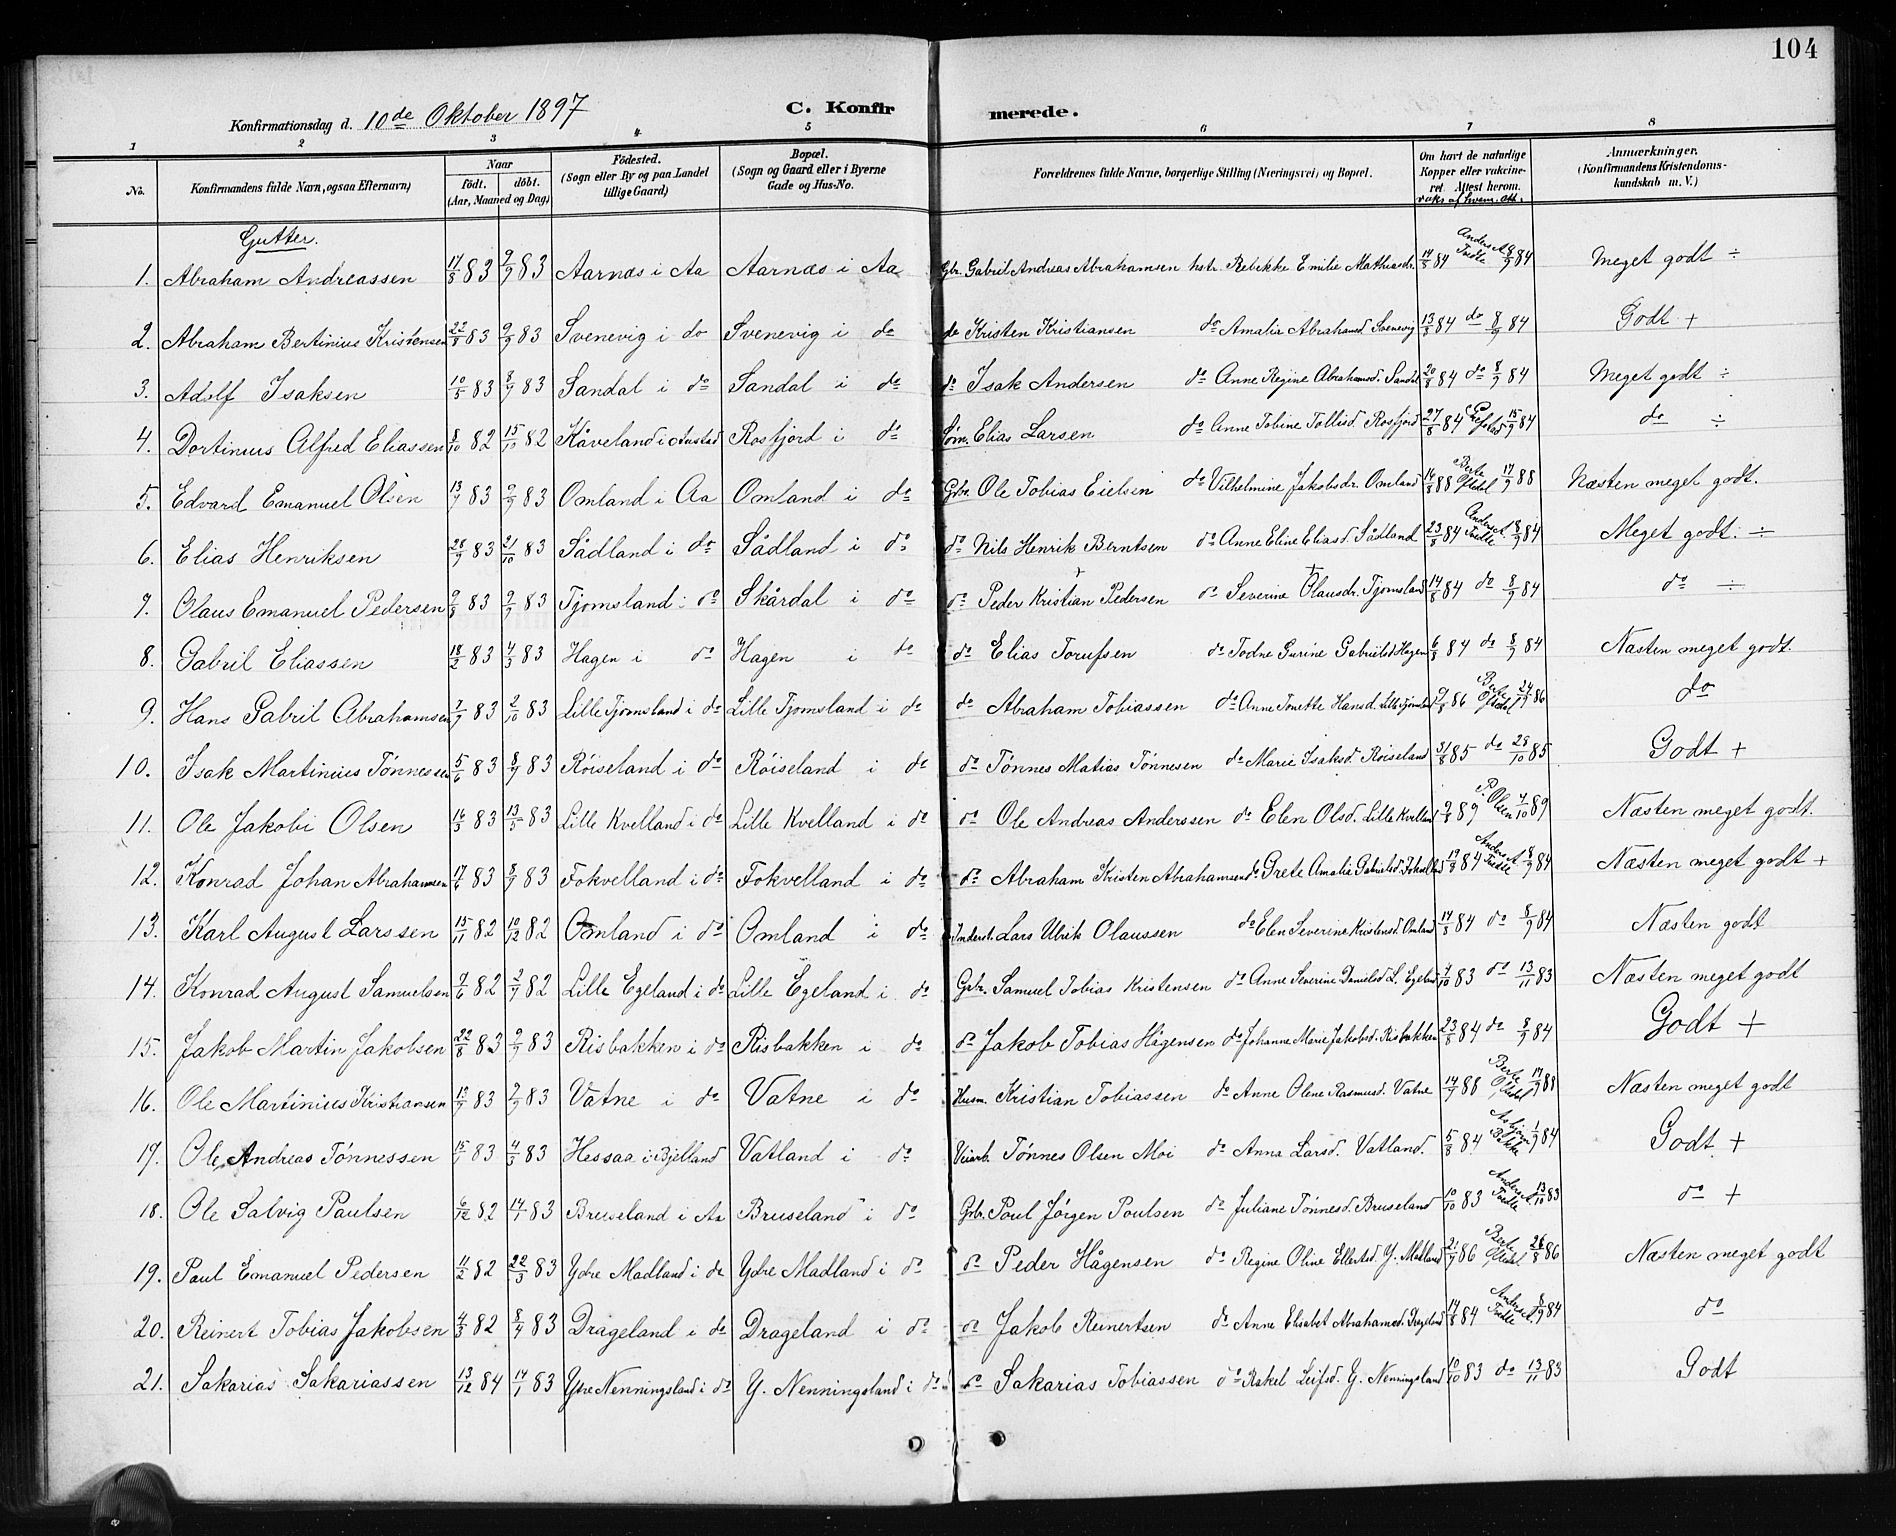 104
Konfirmationsdag d. 10de Oktober 1897 C. Konfirmerede.
1 2 3 4 5 6 7 8
No. Konfirmandens fulde Navn, ogsaa Efternavn) Naar födt. döbt. (Aar, Maaned og Dag) Födested. (Sogn eller By og paa Landet tillige Gaard) Bopæl. (Sogn og Gaard eller i Byerne Gade og Hus-No. Forældrenes fulde Navne, borgerlige Stilling (Næringsvei) og Bopæl. Om havt de naturlige Kopper eller vakcineret. Attest herom. vaks af hvem. att. Anmærkninger. (Konfirmandens Kristendomskundskab m. V.)
Gutter.
1. Abraham Andreassen 17/8 83 9/9 83 Aarnæs i Aa Aarnæs i Aa Gbr. Gabriel Andreas Abrahamsen hstr. Rebekke Emilie Mathiasdr. 14/8 84 Anders A Tredle 8/9 84 Meget godt ÷
2. Abraham Bertinius Kristensen 22/8 83 9/9 83 Svenevig i do Svenevig i do do Kristen Kristiansen do Amalia Abrahamsd Svenevig 13/8 84 do 8/9 84 Godt +
3. Adolf Isaksen 10/5 83 8/7 83 Sandal i do Sandal i do do Isak Andersen do Anne Regine Abrahamsd. Sandal 20/8 84 do 8/9 84 Meget godt ÷
4. Dortinius Alfred Eliassen 8/10 82 15/10 82 Kåveland i Austad Rosfjord i do Elias Larsen do Anne Tobine Tollisd. Rosfjord 27/8 84 15/9 84 do ÷
5. Edvard Emanuel Olsen 13/7 83 9/9 83 Omland i Aa Omland i do Gbr. Ole Tobias Eielsen do Vilhelmine Jakobsdr. Omland 16/8 88 Berte 17/9 88 Næsten meget godt.
6. Elias Henriksen 28/9 83 21/10 83 Sådland i do Sådland i do do Nils Henrik Berntsen do Anne Eline Eliasd. Sådland 23/8 84 Anders A Tredle 8/9 84 Meget godt. ÷
7. Olaus Emanuel Pedersen 9/8 83 9/9 83 Tjomsland i do Skårdal i do do Peder Kristian Pedersen do Severine Olausdr. Tjomsland 14/8 84 do 8/9 84 do ÷
8. Gabril Eliassen 18/2 83 4/3 83 Hagen i do Hagen i do do Elias Torufsen do Todne Gurine Gabrielsd Hagen 6/8 84 do 8/9 84 Næsten meget godt.
9. Hans Gabril Abrahamsen 7/9 83 2/10 83 Lille Tjomsland i do Lille Tjomsland i do do Abraham Tobiassen do Anne Tonette Hansd. Lille Tjomsland 9/8 86 Berte 24/9 86 do
10. Isak Martinius Tønnesen 5/6 83 8/7 83 Röiseland i do Röiseland i do do Tønnes Matias Tønnesen do Marie Isaksd. Röiseland 31/8 85 do 28/10 85 Godt +
11. Ole Jakobi Olsen 16/3 83 13/5 83 Lille Kvelland i do Lille Kvelland i do do Ole Andreas Anderssen do Elen Olsd. Lille Kvelland 9/8 89 P. Olsen 4/10 89 Næsten meget godt.
12. Konrad Johan Abrahamsen 17/6 83 8/7 83 Fokvelland i do Fokvelland i do do Abraham Kristen Abrahamsen do Grete Amalia Gabrielsd. Fokvelland 19/8 84 Anders A Tredle 8/9 84 Næsten meget godt +
13. Karl August Larssen 15/11 82 10/12 82 Omland i do Omland i do Inderst. Lars Ulrik Olaussen do Elen Severine Kristensd. Omland 14/8 84 do 8/9 84 Næsten godt
14. Konrad August Samuelsen 7/6 82 2/7 82 Lille Egeland i do Lille Egeland i do Gbr. Samuel Tobias Kristensen do Anne Severine Danielsd L. Egeland 4/10 83 do 13/11 83 Næsten meget godt
15. Jakob Martin Jakobsen 22/8 83 9/9 83 Risbakken i do Risbakken i do do Jakob Tobias Hågensen do Johanne Marie Jakobsd. Risbakken 23/8 84 do 8/9 84 Godt +
16. Ole Martinius Kristiansen 12/7 83 9/9 83 Vatne i do Vatne i do Husm. Kristian Tobiassen do Anne Olene Rasmusd. Vatne 14/9 88 Berte 17/9 88 Næsten meget godt
17. Ole Andreas Tønnessen 15/1 83 4/3 83 Hessaa i Bjelland Vatland i do Veiarb. Tønnes Olsen Moi do Anna Larsd. Vatland. 5/8 84 Asbjørn Bakke 1/9 84 Godt +
18. Ole Salvig Paulsen 6/12 82 14/1 83 Bruseland i Aa Bruseland i do Gbr. Poul Jørgen Poulsen do Juliane Tønnesd. Bruseland 10/10 83 Anders A. Tredle 13/10 83 do +
19. Paul Emanuel Pedersen 11/2 82 22/3 83 Ydre Madland i do Ydre Madland i do do Peder Hågensen do Regine Oline Ellertsd. Y. Madland 2/9 86 Berte 26/8 86 Næsten meget godt
20. Reinert Tobias Jakobsen 4/3 82 8/4 83 Drageland i do Drageland i do do Jakob Reinertsen do Anne Elisabet Abrahamsd. Drageland 14/8 84 Anders A. Tredle 8/9 84 do
21. Sakarias Sakariassen 13/12 84 14/1 83 Ydre Nenningsland i do Y. Nenningsland i do do Sakarias Tobiassen do Rakel Leifsd. Y. Nenningsland 10/10 83 do 13/11 83 Godt